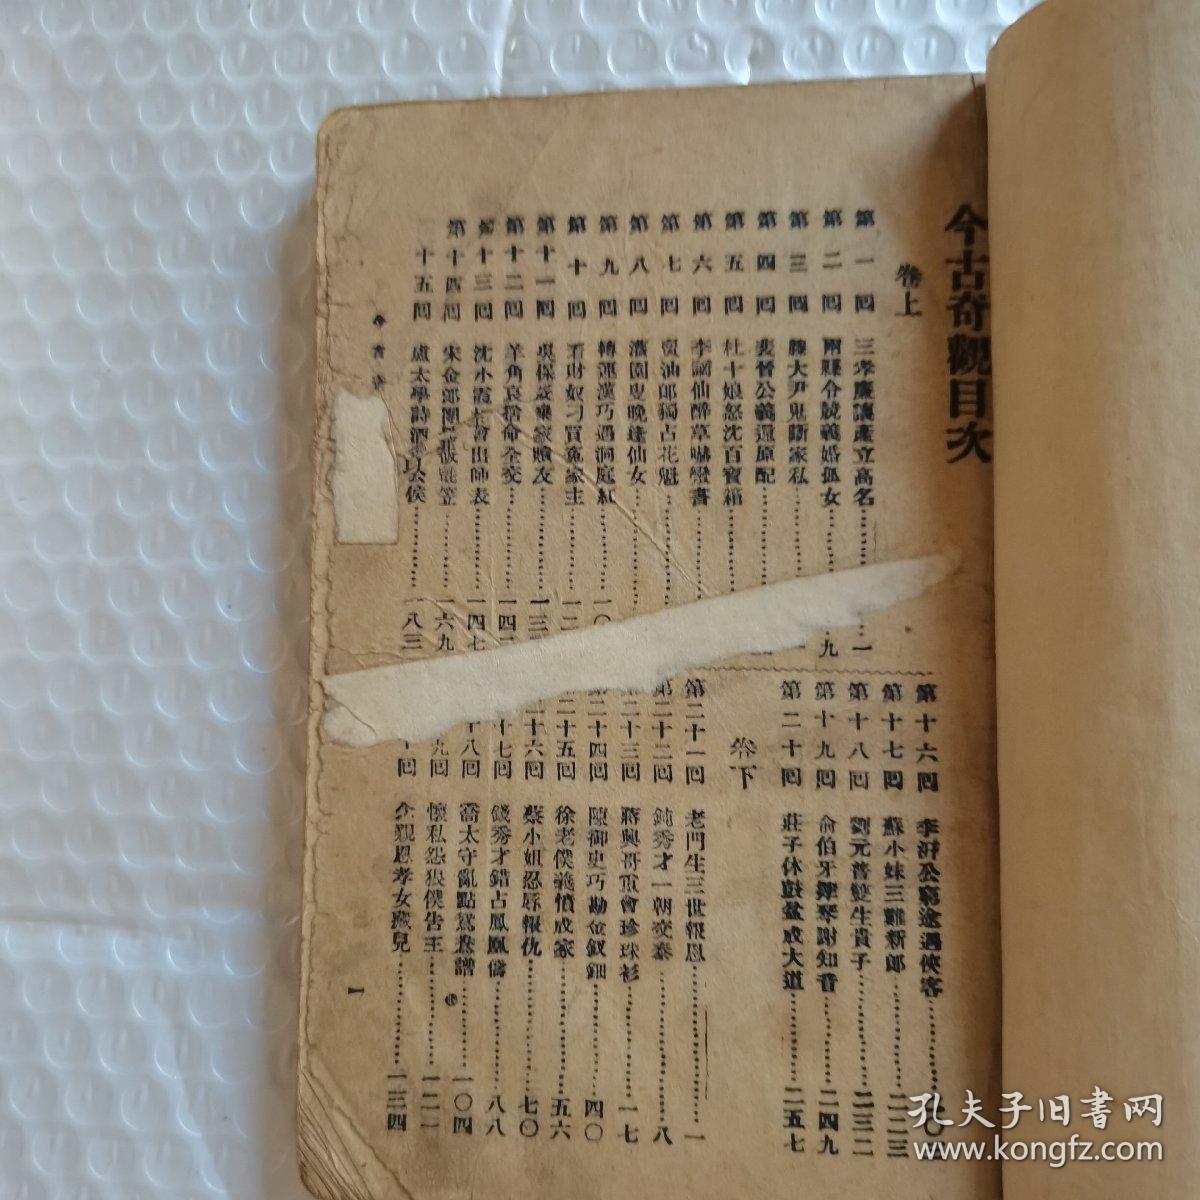 今古奇觀目次
卷上
第一回 三孝廉讓產立高名…………一
第二回 兩縣令競義婚孤女…………九
第三回 滕大尹鬼斷家私…………
第四回 裴晉公義還原配…………
第五回 杜十娘怒沈百寶箱…………
第六回 李謫仙醉草嚇蠻書…………
第七回 賣油郎獨占花魁…………
第八回 灌園叟晚逢仙女…………
第九回 轉運漢巧遇洞庭紅…………一〇
第十回 看財奴刁買冤家主…………一二
第十一回 吳保安棄家贖友…………一三
第十二回 羊角哀捨命全交…………一四
第十三回 沈小霞相會出師表…………一四七
第十四回 宋金郎團圓破氈笠…………一六九
十五回 盧太學詩酒傲公侯…………一八三
第十六回 李汧公窮途遇俠客…………
第十七回 蘇小妹三難新郎…………二二三
第十八回 劉元普雙生貴子…………二三二
第十九回 俞伯牙摔琴謝知音…………二四九
第二十回 莊子休鼓盆成大道…………二五七
卷下
第二十一回 老門生三世報恩…………一
第二十二回 鈍秀才一朝交泰…………八
第二十三回 蔣興哥重會珍珠衫…………一七
第二十四回 陳御史巧勘金釵鈿…………四〇
二十五回 徐老僕義憤成家…………五六
二十六回 蔡小姐忍辱報仇…………七〇
十七回 錢秀才錯占鳳凰儔…………八八
十八回 喬太守亂點鴛鴦譜…………一〇四
九回 懷私怨狠僕告主…………一二一
十回 念親恩孝女藏兒…………一三四
一
孔夫子旧書网
www.kongfz.com